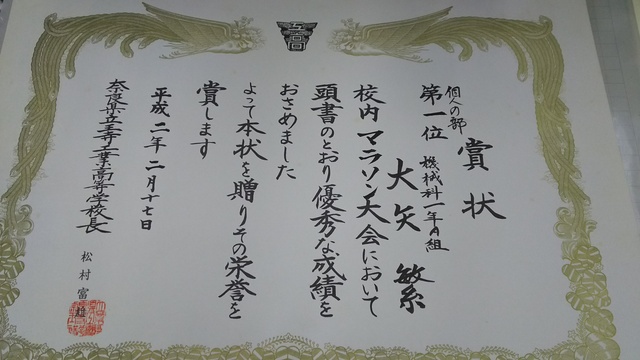 賞状
個人の部
第一位 機械科一年A組
大矢 繁
校内マラソン大会において
頭書のとおり優秀な成績を
おさめました
よって本状を贈りその栄誉を
賞します
平成二年二月十七日
奈良県立王寺工業高等学校長
松村富雄